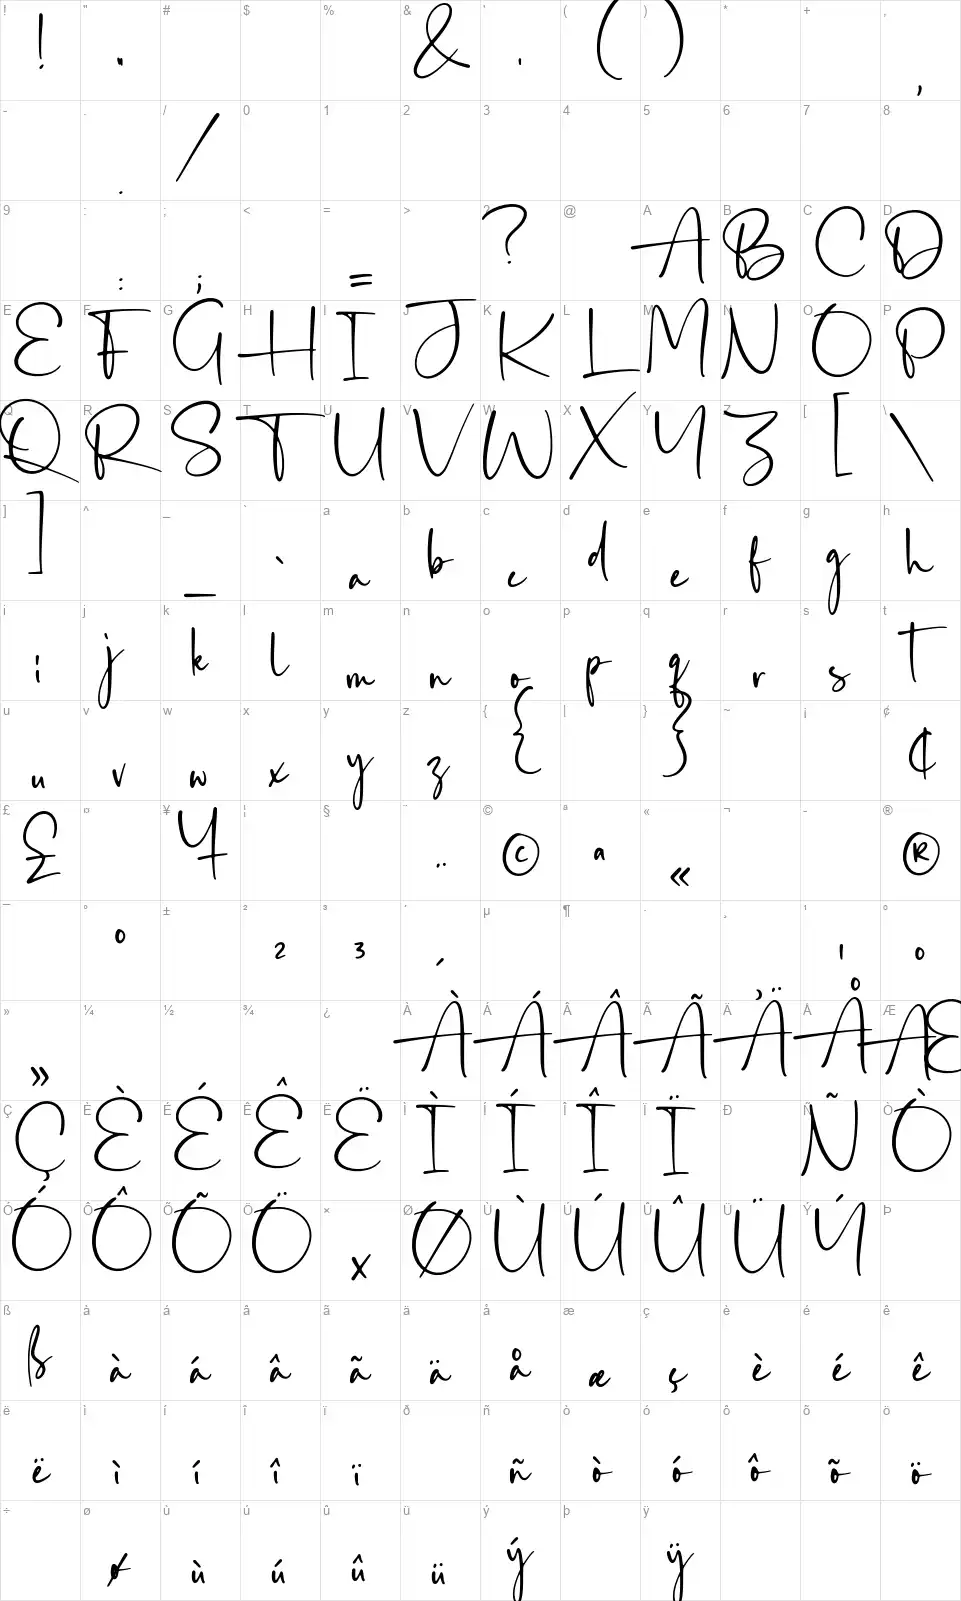 ! " # $ % & ' ( ) * + ,
! " & ' ( ) ,
- . / 0 1 2 3 4 5 6 7 8
. /
9 : ; < = > ? @ A B C D
: ; = ? A B C D
E F G H I J K L M N O P
E F G H I J K L M N O P
Q R S T U V W X Y Z [ \
Q R S T U V W X Y Z [ \
] ^ _ ` a b c d e f g h
] _ ` a b c d e f g h
i j k l m n o p q r s t
i j k l m n o p q r s t
u v w x y z { | } ~ ¡ ¢
u v w x y z { } ¢
£ ¤ ¥ ¦ § ¨ © ª « ¬ - ®
£ ¥ ¨ © ª « ®
¯ ° ± ² ³ ´ µ ¶ · ¸ ¹ º
° ² ³ ´ ¸ ¹ º
» ¼ ½ ¾ ¿ À Á Â Ã Ä Å Æ
» À Á Â Ã Ä Å Æ
Ç È É Ê Ë Ì Í Î Ï Ð Ñ Ò
Ç È É Ê Ë Ì Í Î Ï Ñ Ò
Ó Ô Õ Ö × Ø Ù Ú Û Ü Ý Þ
Ó Ô Õ Ö × Ø Ù Ú Û Ü Ý
ß à á â ã ä å æ ç è é ê
ß à á â ã ä å æ ç è é ê
ë ì í î ï ð ñ ò ó ô õ ö
ë ì í î ï ñ ò ó ô õ ö
÷ ø ù ú û ü ý þ ÿ
ø ù ú û ü ý ÿ